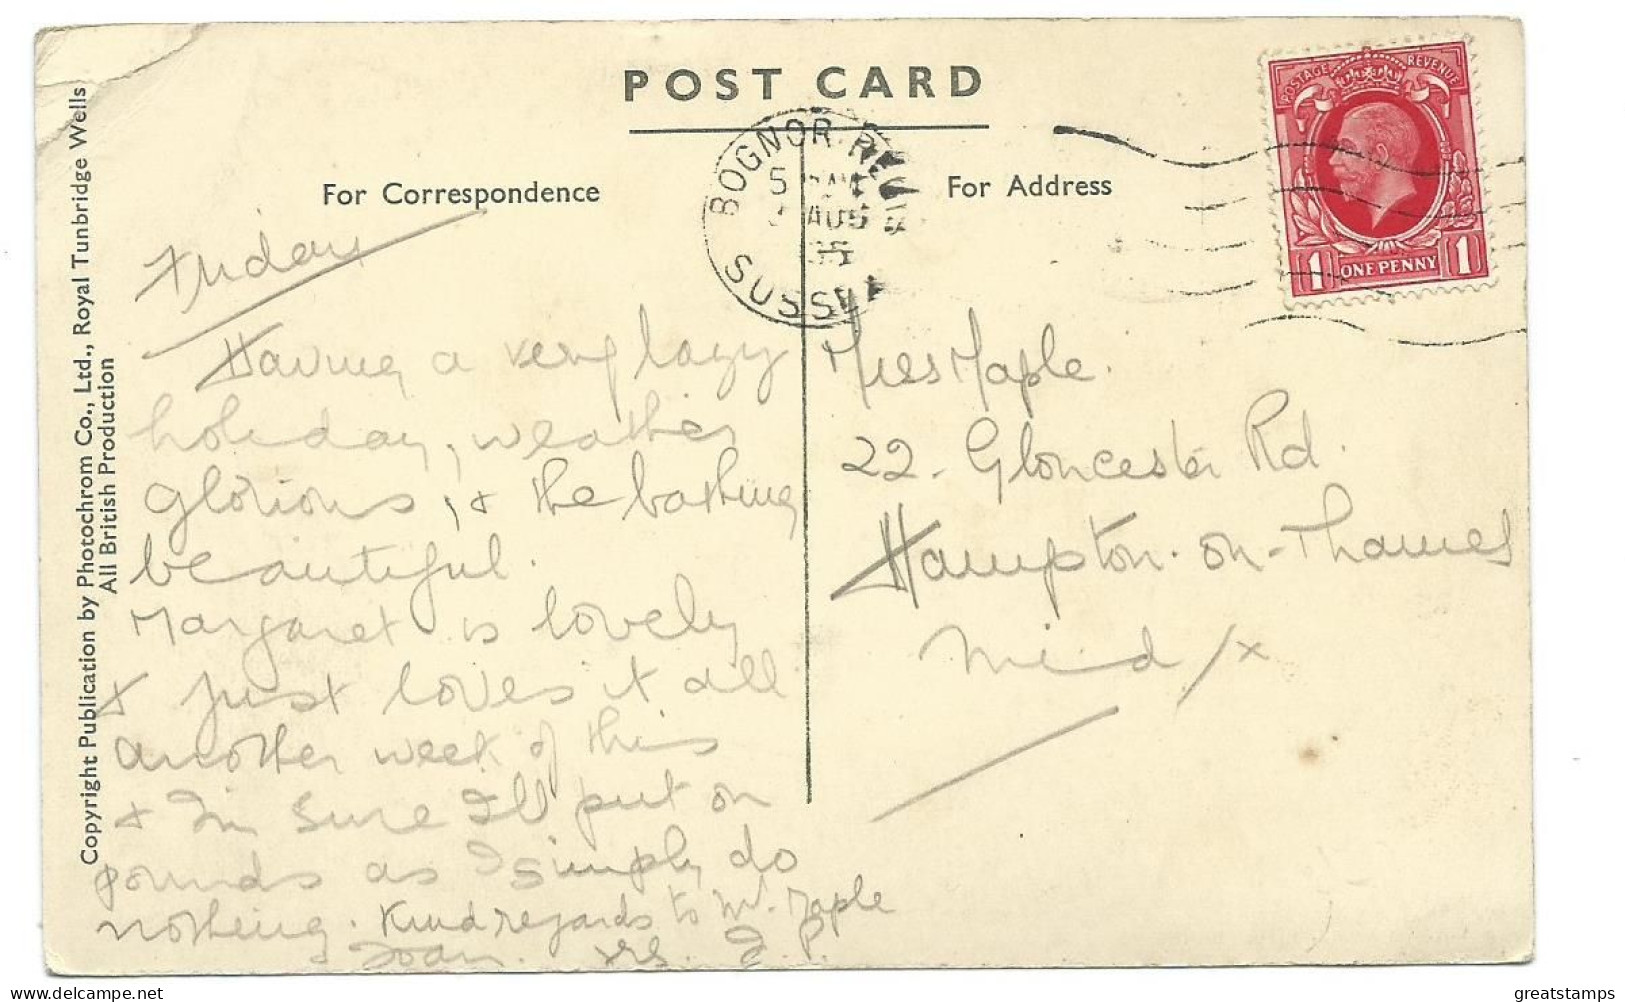 POST CARD
For Correspondence
For Address
BOGNOR REGIS
SUSSEX
5
AUG
35
POSTAGE REVENUE
1 ONE PENNY 1
Copyright Publication by Photochrom Co., Ltd., Royal Tunbridge Wells
All British Production
Friday
Having a very lazy
holiday, weather
glorious, & the bathing
beautiful.
Margaret is lovely
& just loves it all
another week of this
& I'm sure I'll put on
pounds as I simply do
nothing. Kind regards to Mr. Maple
Joan. yrs.
Maple.
22. Gloncester Rd.
Hampton-on-Thames
Midx
greatstamps